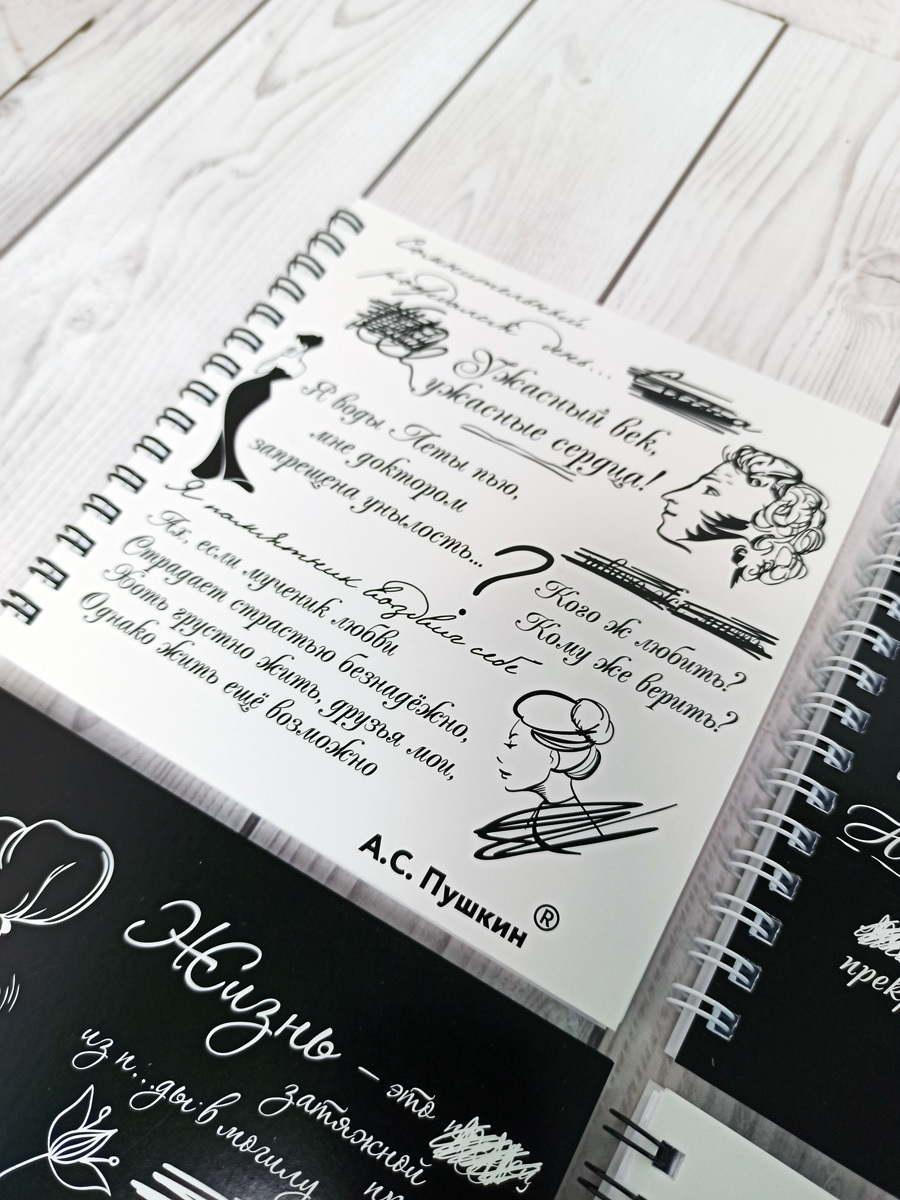 Сомнительный
родился день...
Ужасный век,
ужасные сердца!
Я воды Леты пью,
мне доктором
запрещена унылость...
Я памятник воздвиг себе
?
Кого ж любить?
Кому же верить?
Ах, если мученик любви
Страдает страстью безнадёжно,
Хоть грустно жить, друзья мои,
Однако жить ещё возможно
А.С. Пушкин ®
Жизнь
– это
затяжной
из п...ды в могилу